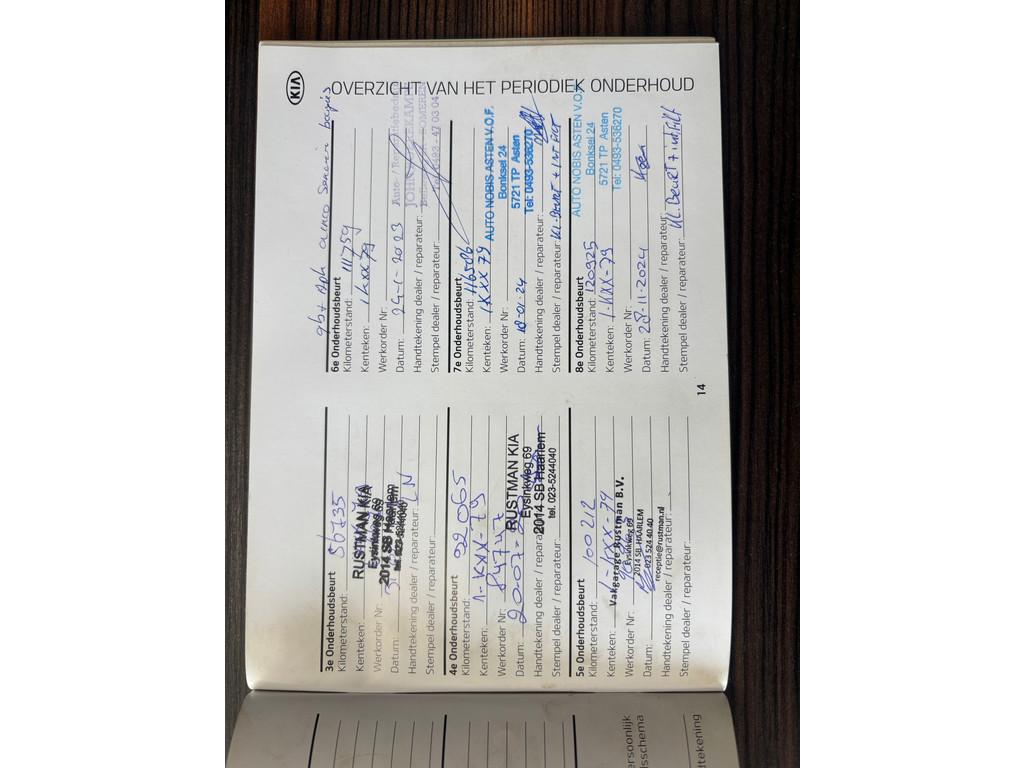 KIA
OVERZICHT VAN HET PERIODIEK ONDERHOUD
3e Onderhoudsbeurt
Kilometerstand: 86735
Kenteken:
Werkorder Nr:
Datum:
Handtekening dealer / reparateur:
Stempel dealer / reparateur:
RUSTMAN KIA
Eysinkweg 69
2014 SB Haarlem
tel. 023-5244040
4e Onderhoudsbeurt
Kilometerstand: 92065
Kenteken: 1-KXX-79
Werkorder Nr:
Datum:
Handtekening dealer / reparateur:
Stempel dealer / reparateur:
RUSTMAN KIA
Eysinkweg 69
2014 SB Haarlem
tel. 023-5244040
5e Onderhoudsbeurt
Kilometerstand: 100212
Kenteken: 1-KXX-79
Werkorder Nr:
Datum:
Handtekening dealer / reparateur:
Stempel dealer / reparateur:
Vakgarage Rustman B.V.
Eysinkweg 69
2014 SB-HAARLEM
023 524 40 40
receptie@rustman.nl
6e Onderhoudsbeurt
Kilometerstand: 111759
Kenteken: 1kxx79
Werkorder Nr:
Datum: 24-1-2023
Handtekening dealer / reparateur:
Stempel dealer / reparateur:
7e Onderhoudsbeurt
Kilometerstand: 116506
Kenteken: 1KXX 79
Werkorder Nr:
Datum: 18-01-24
Handtekening dealer / reparateur:
Stempel dealer / reparateur: KL-Beurt + Int Filt
AUTO NOBIS ASTEN V.O.F.
Bonksel 24
5721 TP Asten
Tel: 0493-536270
8e Onderhoudsbeurt
Kilometerstand: 120925
Kenteken: 1-KXX-79
Werkorder Nr:
Datum: 28-11-2024
Handtekening dealer / reparateur:
Stempel dealer / reparateur: KL Beurt + int Filt
AUTO NOBIS ASTEN V.O.F.
Bonksel 24
5721 TP Asten
Tel: 0493-536270
14